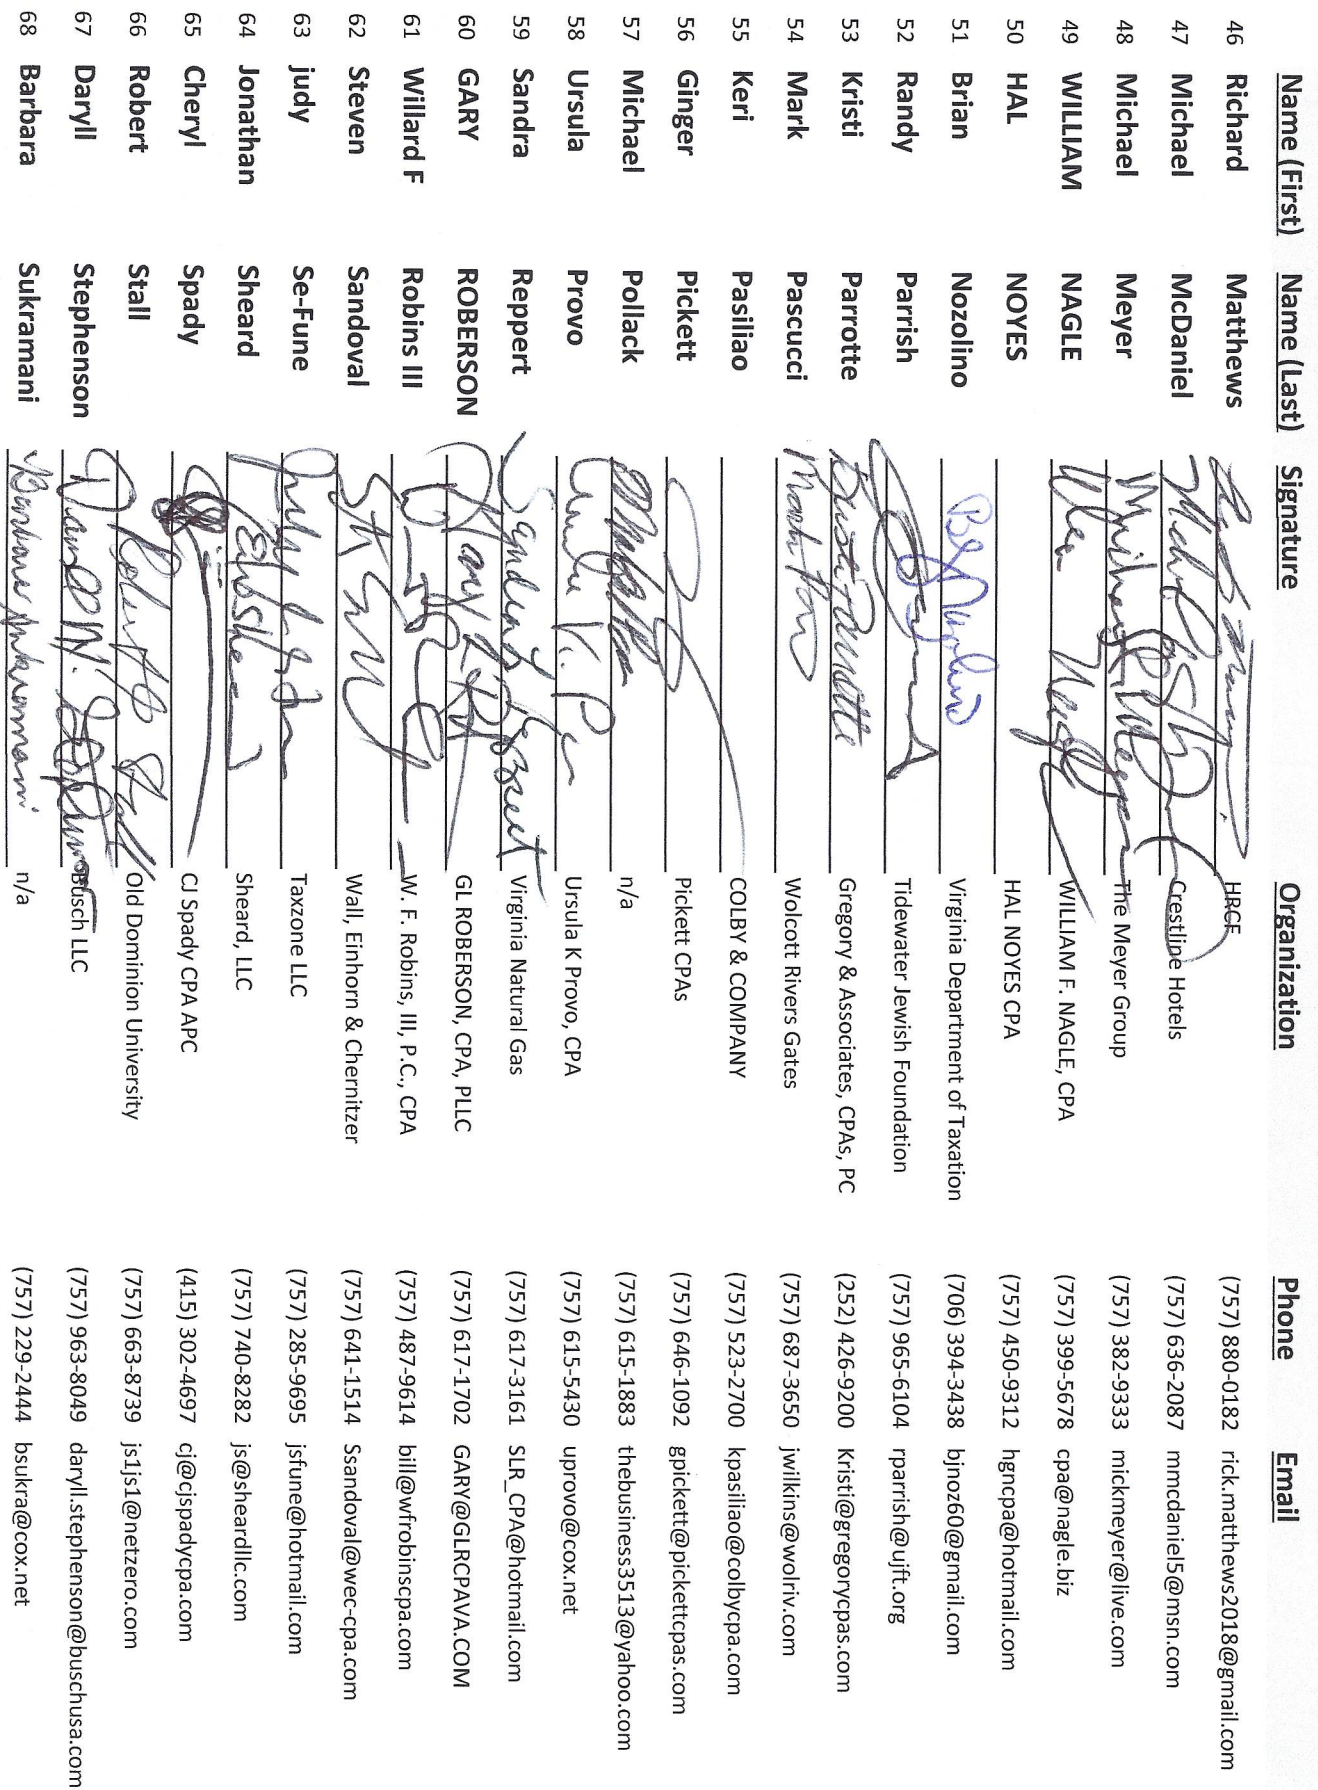 Name (First) Name (Last) Signature Organization Phone Email
46 Richard Matthews HRCF (757) 880-0182 rick.matthews2018@gmail.com
47 Michael McDaniel Crestline Hotels (757) 636-2087 mmcdaniel5@msn.com
48 Michael Meyer The Meyer Group (757) 382-9333 mickmeyer@live.com
49 WILLIAM NAGLE WILLIAM F. NAGLE, CPA (757) 399-5678 cpa@nagle.biz
50 HAL NOYES HAL NOYES CPA (757) 450-9312 hgncpa@hotmail.com
51 Brian Nozolino Virginia Department of Taxation (706) 394-3438 bjnoz60@gmail.com
52 Randy Parrish Tidewater Jewish Foundation (757) 965-6104 rparrish@ujft.org
53 Kristi Parrotte Kristi Parrotte Gregory & Associates, CPAs, PC (252) 426-9200 Kristi@gregorycpas.com
54 Mark Pascucci Mark Wolcott Rivers Gates (757) 687-3650 jwilkins@wolriv.com
55 Keri Pasiliao COLBY & COMPANY (757) 523-2700 kpasiliao@colbycpa.com
56 Ginger Pickett Pickett CPAs (757) 646-1092 gpickett@pickettcpas.com
57 Michael Pollack n/a (757) 615-1883 thebusiness3513@yahoo.com
58 Ursula Provo Ursula K Provo, CPA (757) 615-5430 uprovo@cox.net
59 Sandra Reppert Sandra Virginia Natural Gas (757) 617-3161 SLR_CPA@hotmail.com
60 GARY ROBERSON Gary GL ROBERSON, CPA, PLLC (757) 617-1702 GARY@GLRCPAVA.COM
61 Willard F Robins III W. F. Robins, III, P.C., CPA (757) 487-9614 bill@wfrobinscpa.com
62 Steven Sandoval Wall, Einhorn & Chernitzer (757) 641-1514 Ssandoval@wec-cpa.com
63 judy Se-Fune Taxzone LLC (757) 285-9695 jsfune@hotmail.com
64 Jonathan Sheard Sheard, LLC (757) 740-8282 js@sheardllc.com
65 Cheryl Spady CJ Spady CPA APC (415) 302-4697 cj@cjspadycpa.com
66 Robert Stall Robert Stall Old Dominion University (757) 663-8739 js1js1@netzero.com
67 Daryll Stephenson Busch LLC (757) 963-8049 daryll.stephenson@buschusa.com
68 Barbara Sukramani Barbara Sukramani n/a (757) 229-2444 bsukra@cox.net